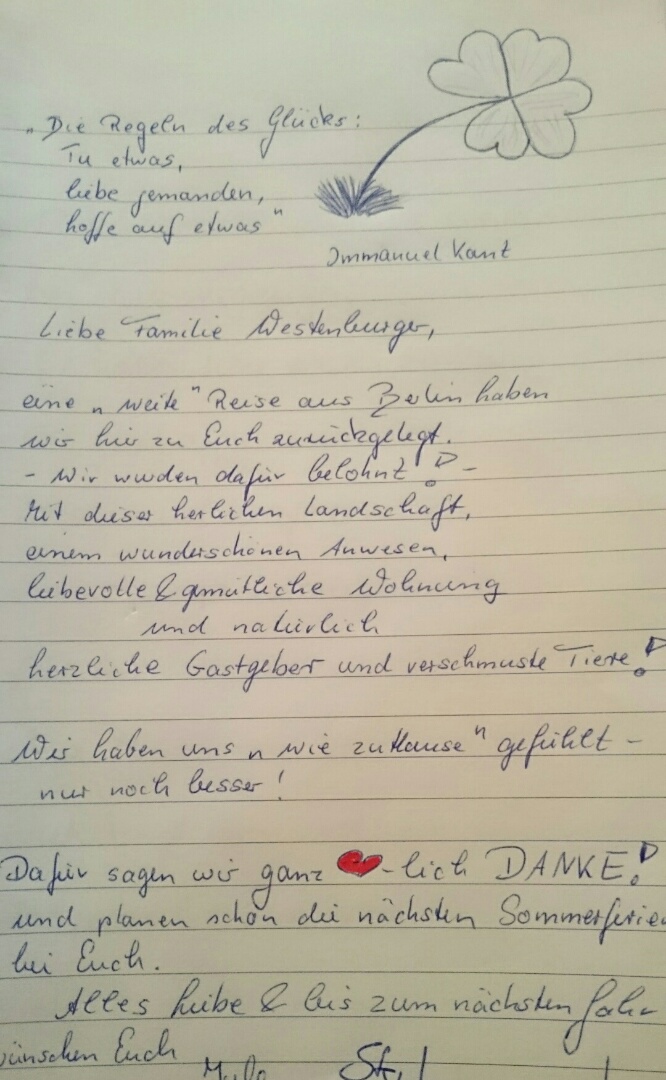 „Die Regeln des Glücks:
Tu etwas,
liebe jemanden,
hoffe auf etwas"
Immanuel Kant
Liebe Familie Westenburger,
eine „weite" Reise aus Berlin haben
wir hier zu Euch zurückgelegt.
- Wir wurden dafür belohnt! -
Mit dieser herlichen Landschaft,
einem wunderschönen Anwesen,
liebevolle & gemütliche Wohnung
und natürlich
herzliche Gastgeber und verschmuste Tiere!
Wir haben uns „wie zuHause" gefühlt -
nur noch besser!
Dafür sagen wir ganz ❤-lich DANKE!
und planen schon die nächsten Sommerferie
bei Euch.
Alles liebe & bis zum nächsten Jahr
wünschen Euch